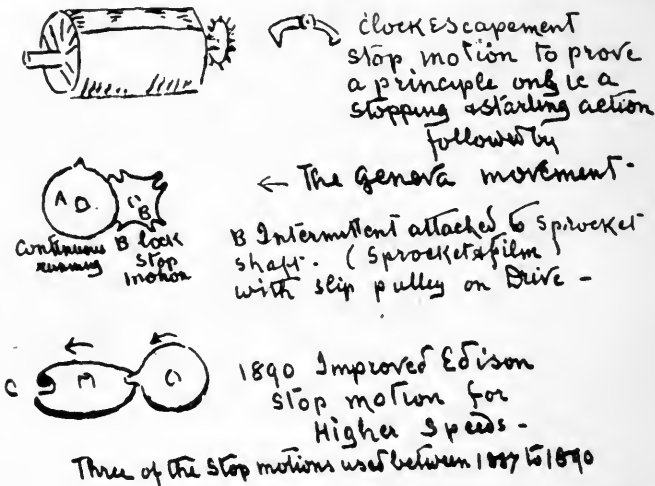 Clock Escapement
stop motion to prove
a principle only ie a
stopping & starting action
followed by
← The Geneva movement-
A D. C B
Continuous running
B lock stop motion
B Intermittent attached to Sprocket
shaft. (Sprocket & film
with slip pulley on Drive -
C M D
1890 Improved Edison
stop motion for
Higher Speeds -
Three of the Stop motions used between 1887 to 1890